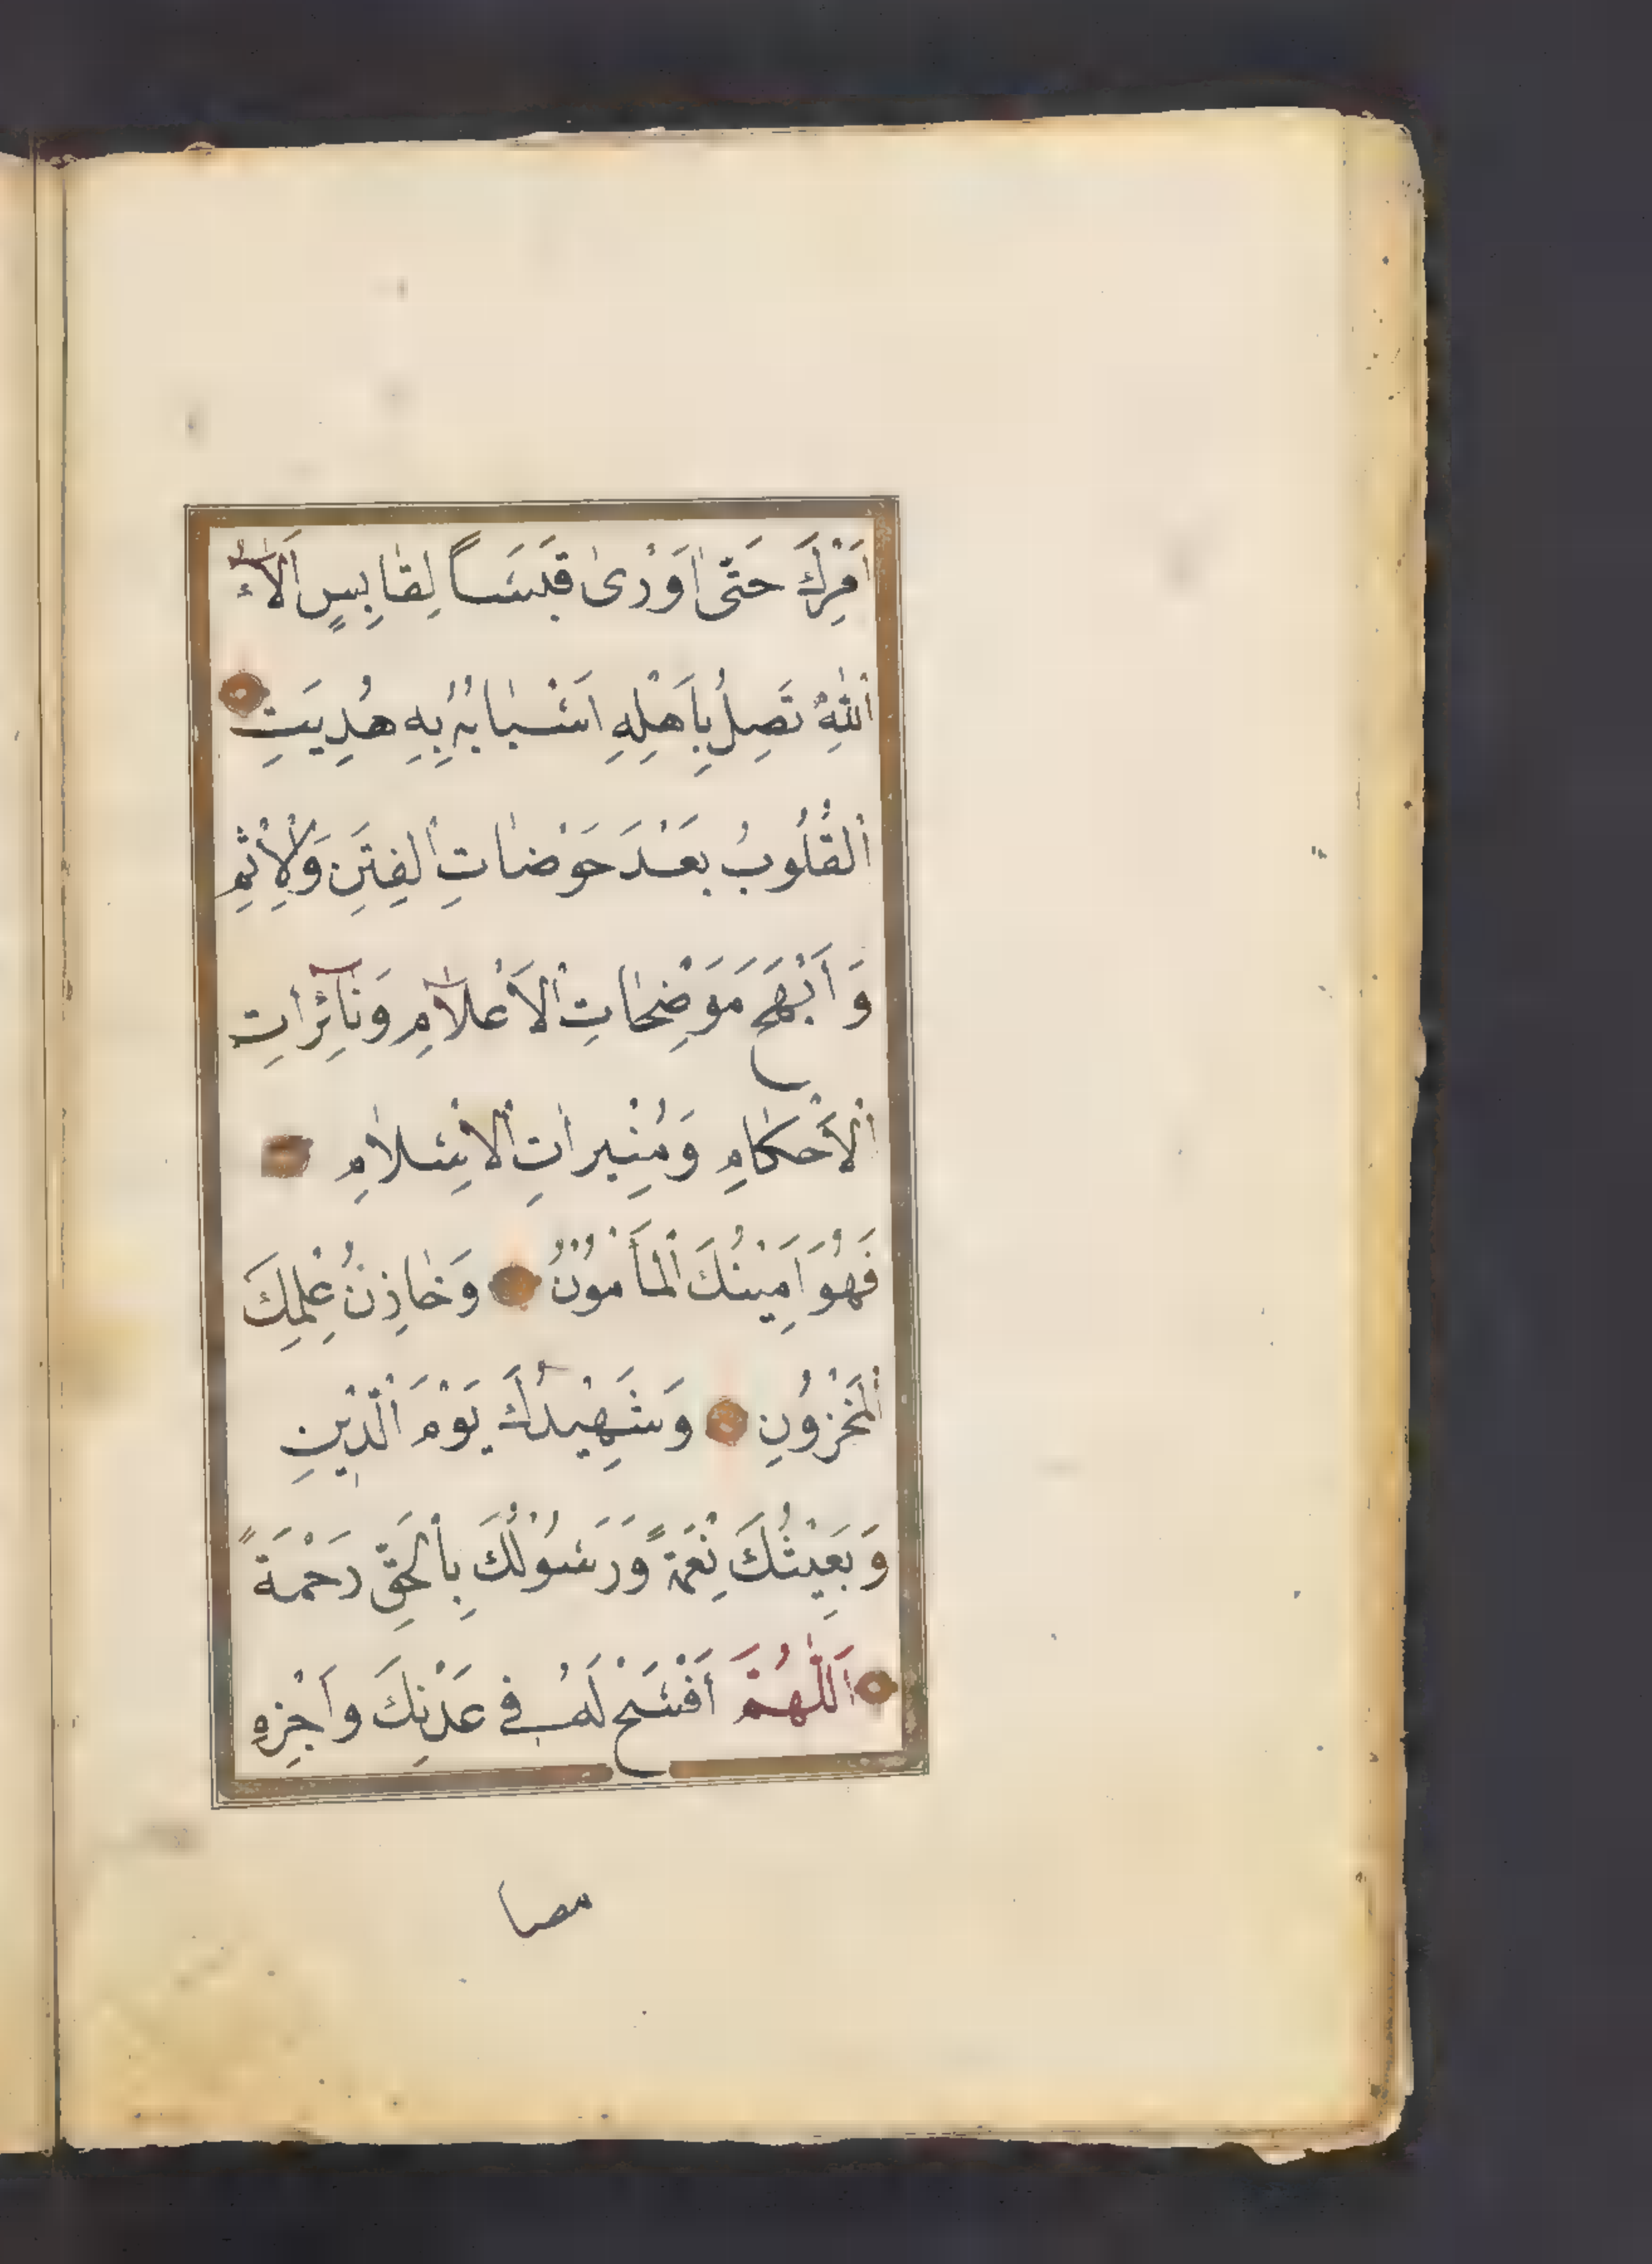 اَمْرِكَ حَتّٰى اَوْرٰى قَبَسَاً لِقَابِسٍ اٰلَآءُ
اللّٰهِ تَصِلُ بِاَهْلِهِ اَسْبَابَهُ بِهِ هُدِيَتِ
الْقُلُوبُ بَعْدَ خَوْضَاتِ الْفِتَنِ وَالْاِثْمِ
وَاَبْهَجَ مُوَضِحَاتِ الْاَعْلَامِ وَنَآئِرَاتِ
الْاَحْكَامِ وَمُنِيرَاتِ الْاِسْلَامِ
فَهُوَ اَمِينُكَ الْمَأْمُونُ وَخَازِنُ عِلْمِكَ
الْمَخْزُونِ وَشَهِيدُكَ يَوْمَ الدِّينِ
وَبَعِيثُكَ نِعْمَةً وَرَسُولُكَ بِالْحَقِّ رَحْمَةً
اَللّٰهُمَّ اَفْسَحْ لَهُ فِى عَدْنِكَ وَاَجْزِهِ
مضا